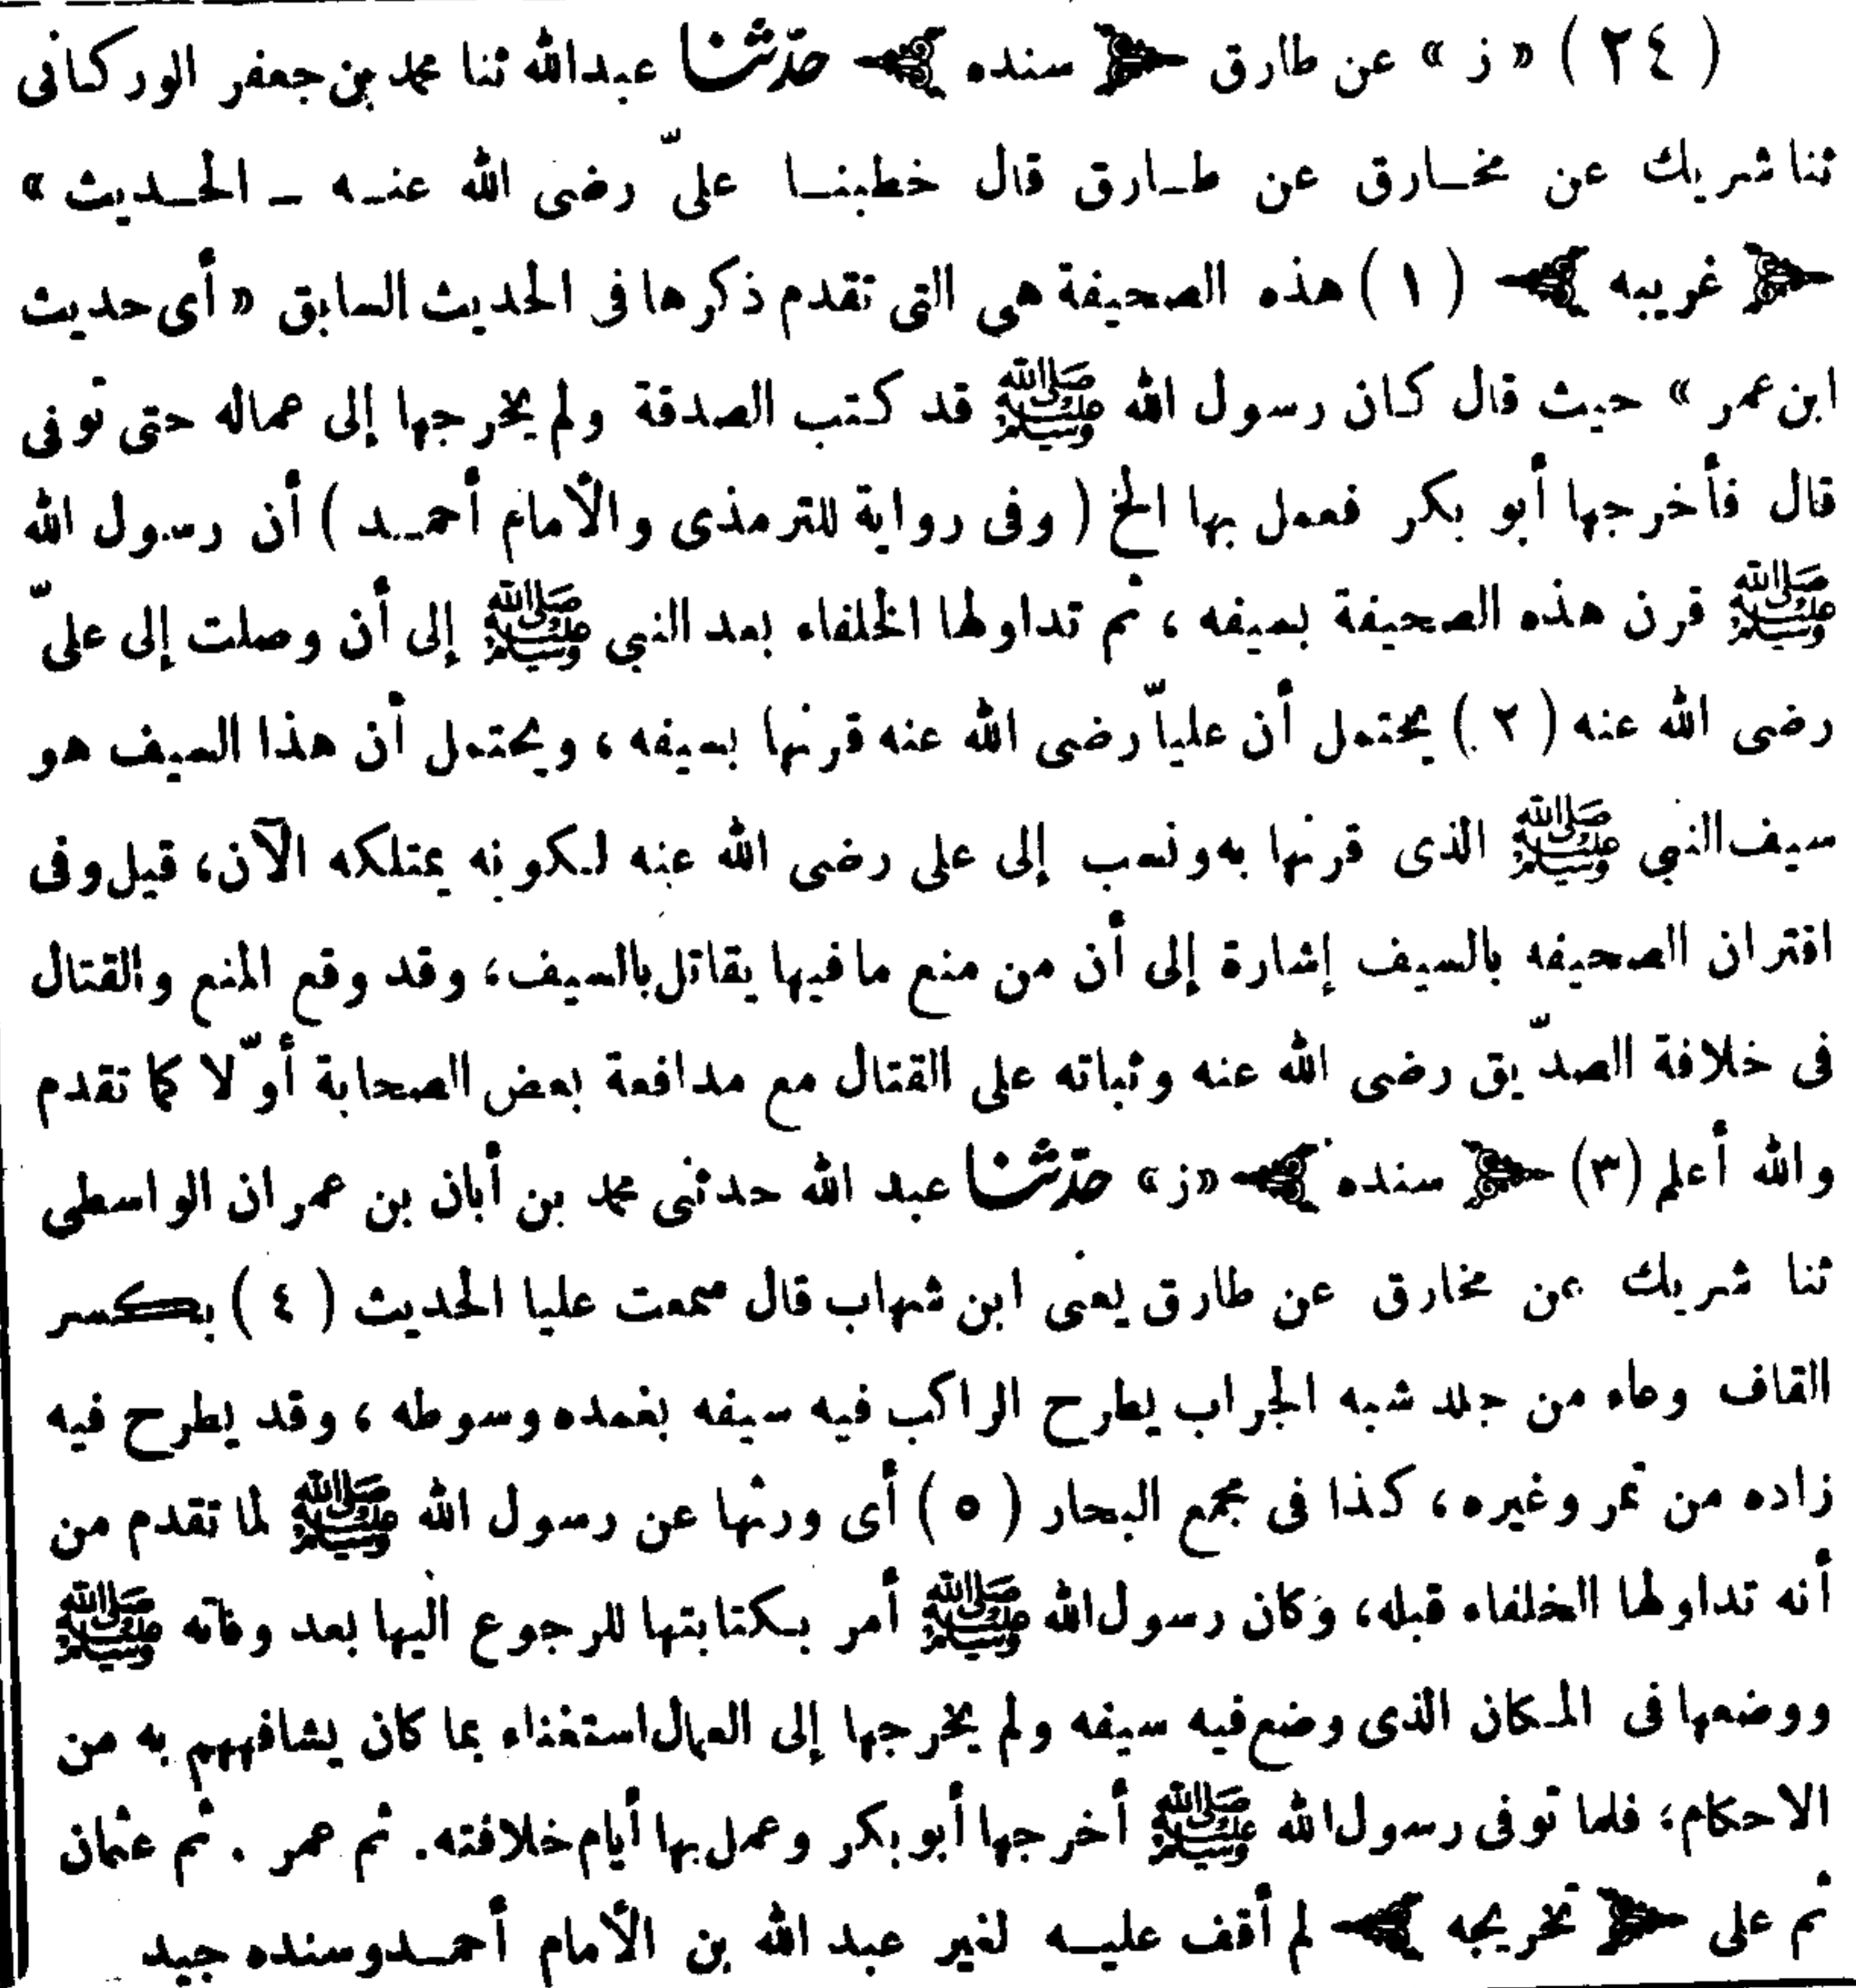 (٢٤) «ز» عن طارق ﴿ سنده ﴾ حدّثنا عبدالله ثنا محمد بن جعفر الوركانى
ثنا شريك عن مخارق عن طارق قال خطبنا علىّ رضى الله عنه ـ الحديث»
﴿ غريبه ﴾ (١) هذه الصحيفة هى التى تقدم ذكرها فى الحديث السابق «أى حديث
ابن عمر» حيث قال كان رسول الله ﷺ قد كتب الصدقة ولم يخرجها إلى عماله حتى توفى
قال فأخرجها أبو بكر فعمل بها الخ (وفى رواية للترمذى والأمام أحمد) أن رسول الله
ﷺ قرن هذه الصحيفة بسيفه، ثم تداولها الخلفاء بعد النبي ﷺ إلى أن وصلت إلى علىّ
رضى الله عنه (٢) يحتمل أن علياّ رضى الله عنه قرنها بسيفه، ويحتمل أن هذا السيف هو
سيف النبي ﷺ الذى قرنها به ونسب إلى على رضى الله عنه لكونه يمتلكه الآن، قيل وفى
اقتران الصحيفه بالسيف إشارة إلى أن من منع مافيها يقاتل بالسيف، وقد وقع المنع والقتال
فى خلافة الصدّيق رضى الله عنه وثباته على القتال مع مدافعة بعض الصحابة أوّلا كما تقدم
والله أعلم (٣) ﴿ سنده ﴾ «ز» حدّثنا عبد الله حدثنى محمد بن أبان بن عمران الواسطى
ثنا شريك عن مخارق عن طارق يعنى ابن شهاب قال سمعت عليا الحديث (٤) بكسر
القاف وعاء من جلد شبه الجراب يطرح الراكب فيه سيفه بغمده وسوطه، وقد يطرح فيه
زاده من تمر وغيره، كذا فى مجمع البحار (٥) أى ورثها عن رسول الله ﷺ لما تقدم من
أنه تداولها الخلفاء قبله، وكان رسول الله ﷺ أمر بكتابتها للرجوع اليها بعد وفاته ﷺ
ووضعها فى المكان الذى وضع فيه سيفه ولم يخرجها إلى العمال استغناء بما كان يشافههم به من
الاحكام؛ فلما توفى رسول الله ﷺ أخرجها أبو بكر وعمل بها أيام خلافته. ثم عمر. ثم عثمان
ثم على ﴿ تخريجه ﴾ لم أقف عليه لغير عبد الله بن الأمام أحمد وسنده جيد